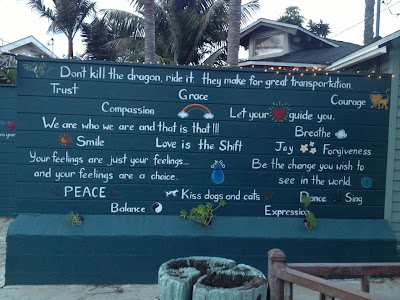 Don't kill the dragon, ride it. they make for great transportation.
Trust
Grace
Courage
Compassion
Let your guide you.
We are who we are and that is that!!!
Breathe
Smile
Love is the Shift
Joy
Forgiveness
Your feelings are just your feelings...
and your feelings are a choice.
Be the change you wish to
see in the world.
PEACE
Kiss dogs and cats
Dance
Sing
Balance
Expression